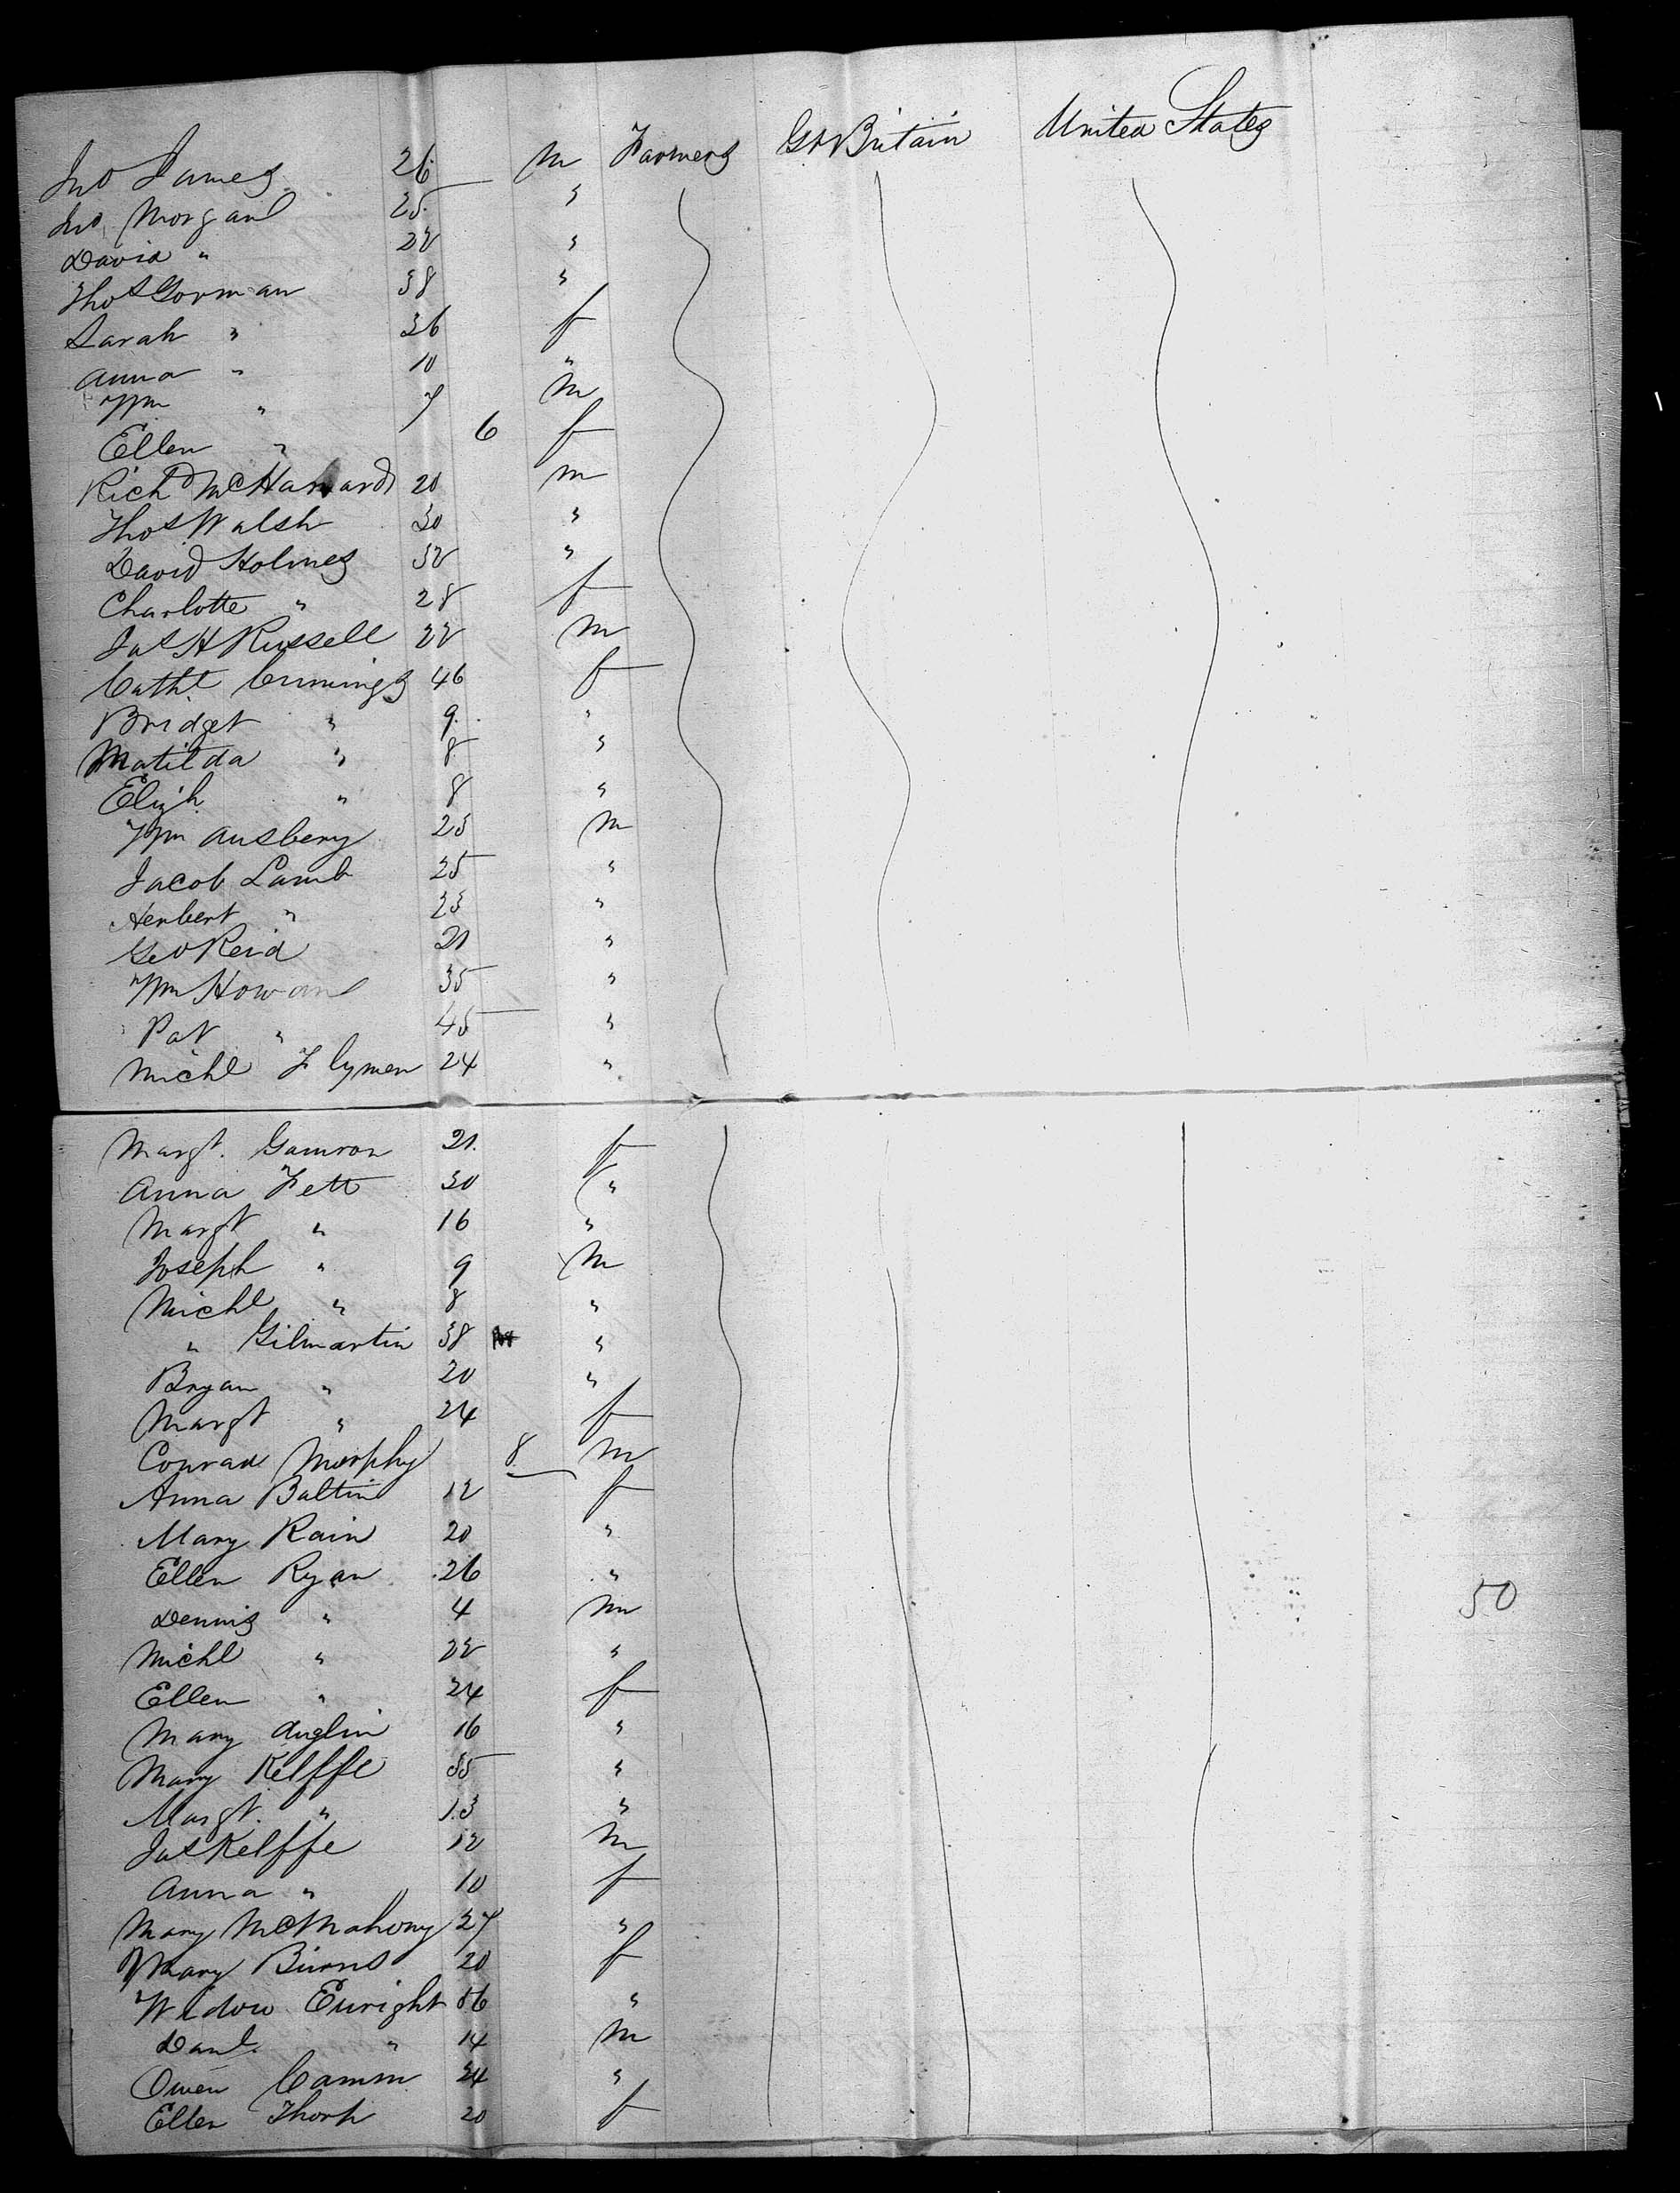 Jno James 26 m Farmers Gt Britain United States
Jno Morgan 25 "
David " 22 "
Thos Gorman 38 "
Sarah " 36 f
Anna " 10 "
Wm " 7 m
Ellen " 6 f
Richd 20 m
Thos Walsh 30 "
David Holmes 32 "
Charlotte " 28 f
Jas H Russell 22 m
Cathe Cumings 46 f
Bridget " 9 "
Matilda " 8 "
Elizh " 8 "
Wm Ausbery 23 m
Jacob Lamb 25 "
Herbert " 23 "
Geo Reid 21 "
Wm Howard 35 "
Pat " 45 "
Michl 24 "
Margt. Gamron 21 f
Anna Fett 30 "
Margt " 16 "
Joseph " 9 m
Michl " 8 "
" Gilmartin 38 "
Bryan " 20 "
Margt " 24 f
Conrad Murphy 8 m
Anna Baltin 12 f
Mary Rain 20 "
Ellen Ryan 26 "
Dennis " 4 m 50
Michl " 22 "
Ellen " 24 f
Mary Anglin 16 "
Mary Kelffe 35 "
Margt. " 13 "
Jas Kelffe 12 m
Anna " 10 f
Mary McMahony 27 "
Mary Burns 20 f
Widow Enright 56 "
Danl. " 14 m
Owen Camm 24 "
Ellen Thorp 20 f